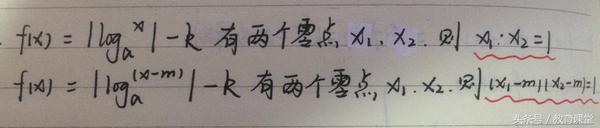 f(x) = |logₐx| - k 有两个零点 x₁. x₂. 则 x₁·x₂=1
f(x) = |logₐ(x-m)| - k 有两个零点, x₁. x₂. 则 (x₁-m)(x₂-m)=1
头条号 / 教育课堂